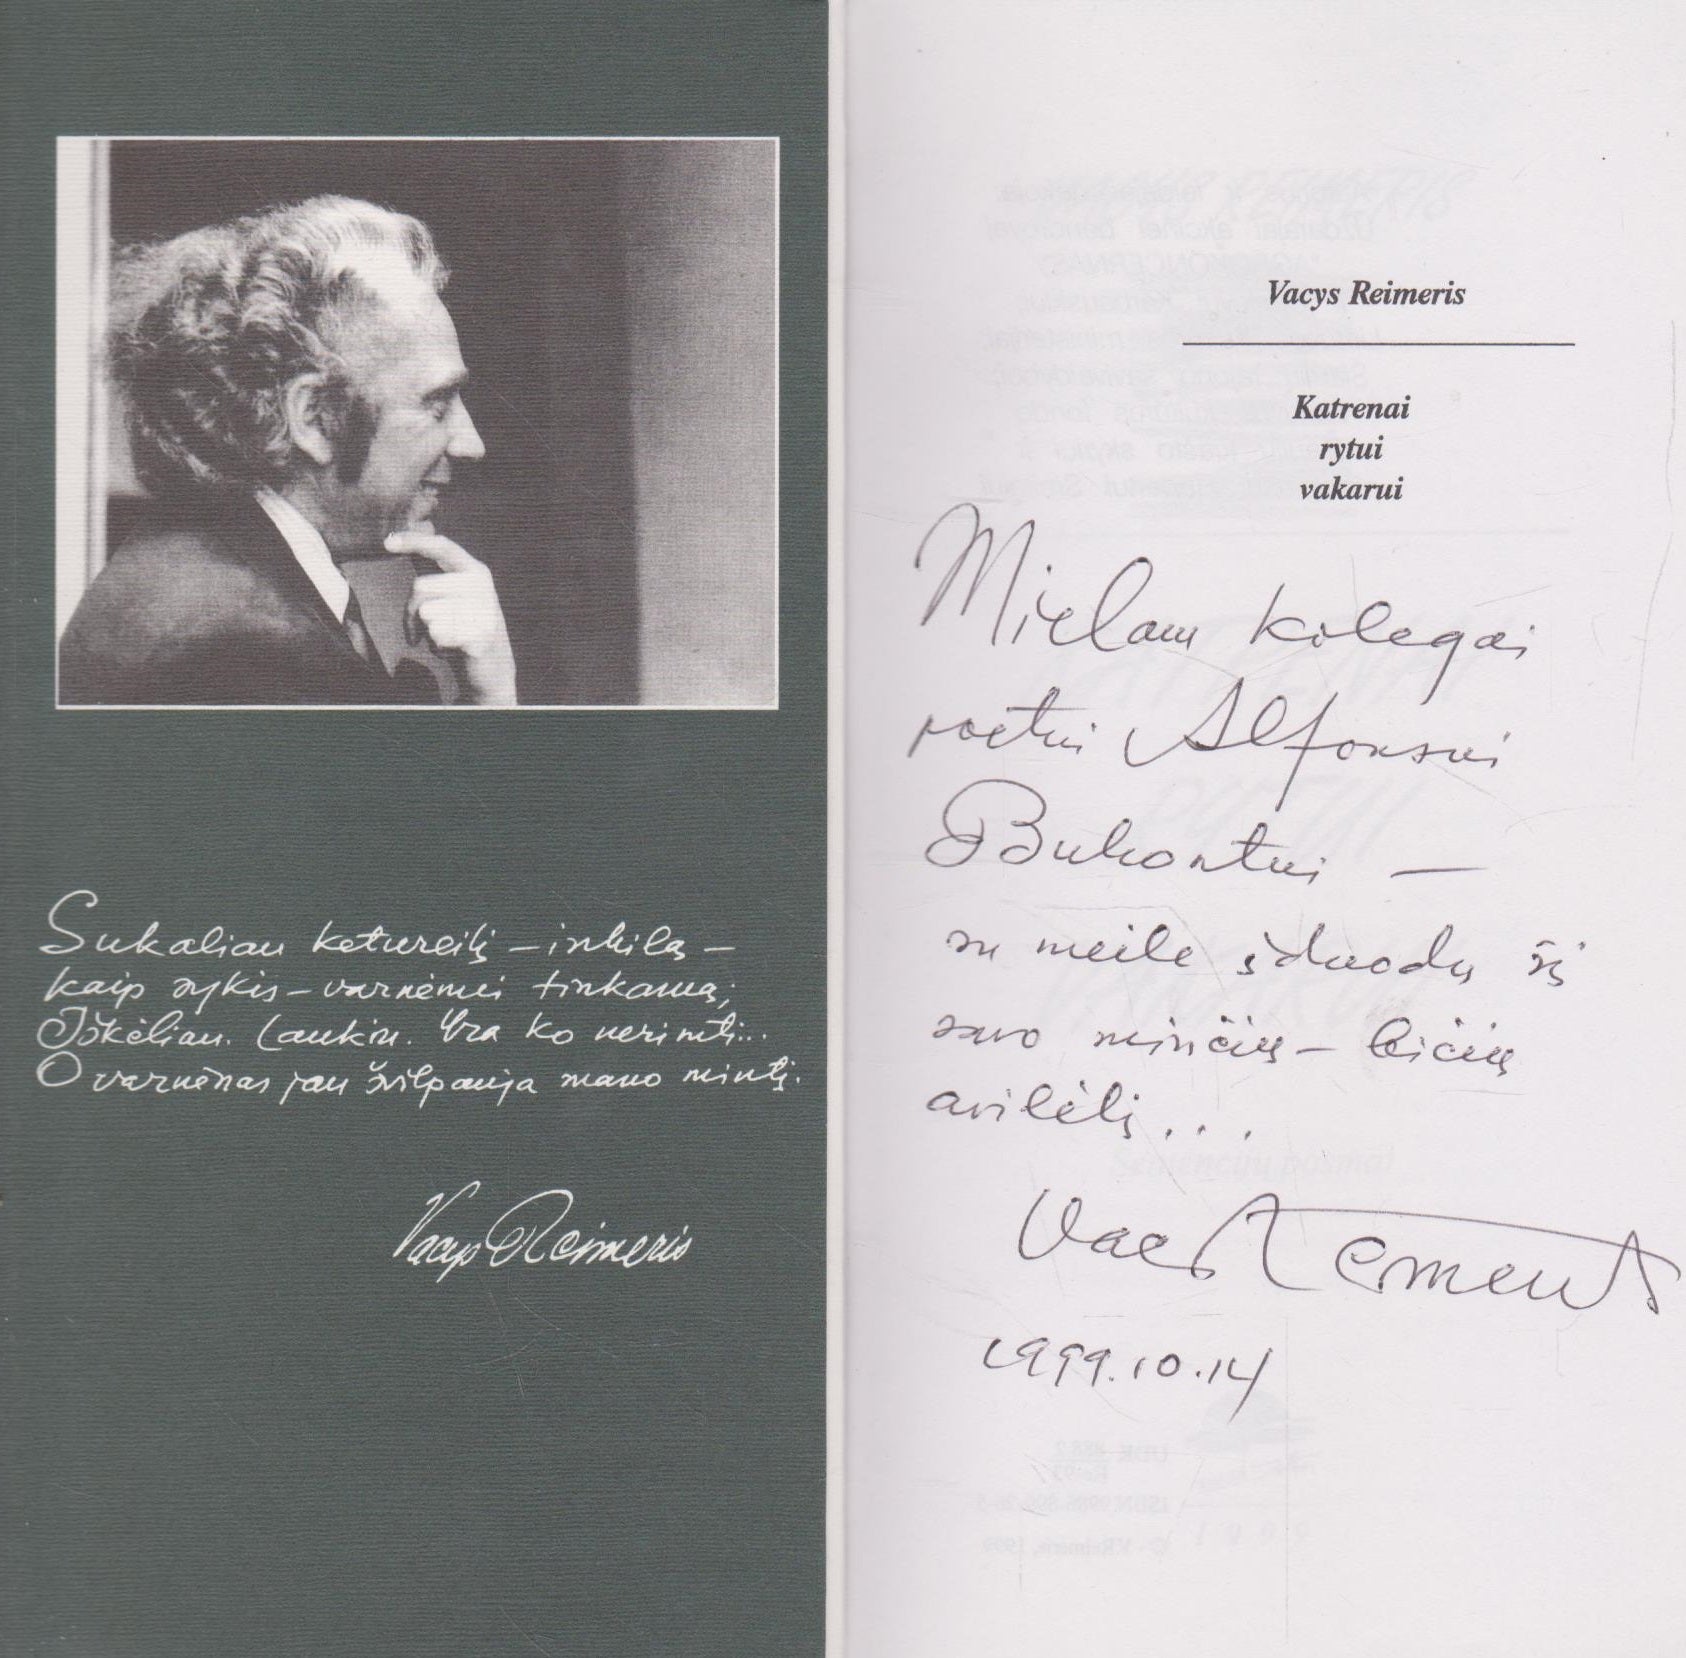 Sukaliau ketureilį – inkilą –
kaip sykis – varnėnui tinkamą;
Iškėliau. Laukiu. Yra ko nerimti...
O varnėnas jau švilpauja mano mintį.
Vacys Reimeris
Vacys Reimeris
Katrenai
rytui
vakarui
Mielam kolegai
poetui Alfonsui
Bukontui –
su meile įduodu šį
savo minčių – bičių
avilėlį...
Vacys Reimeris
1999.10.14
Sentencijų posmai
UDK 888.2
© V. Reimeris, 1999
1999